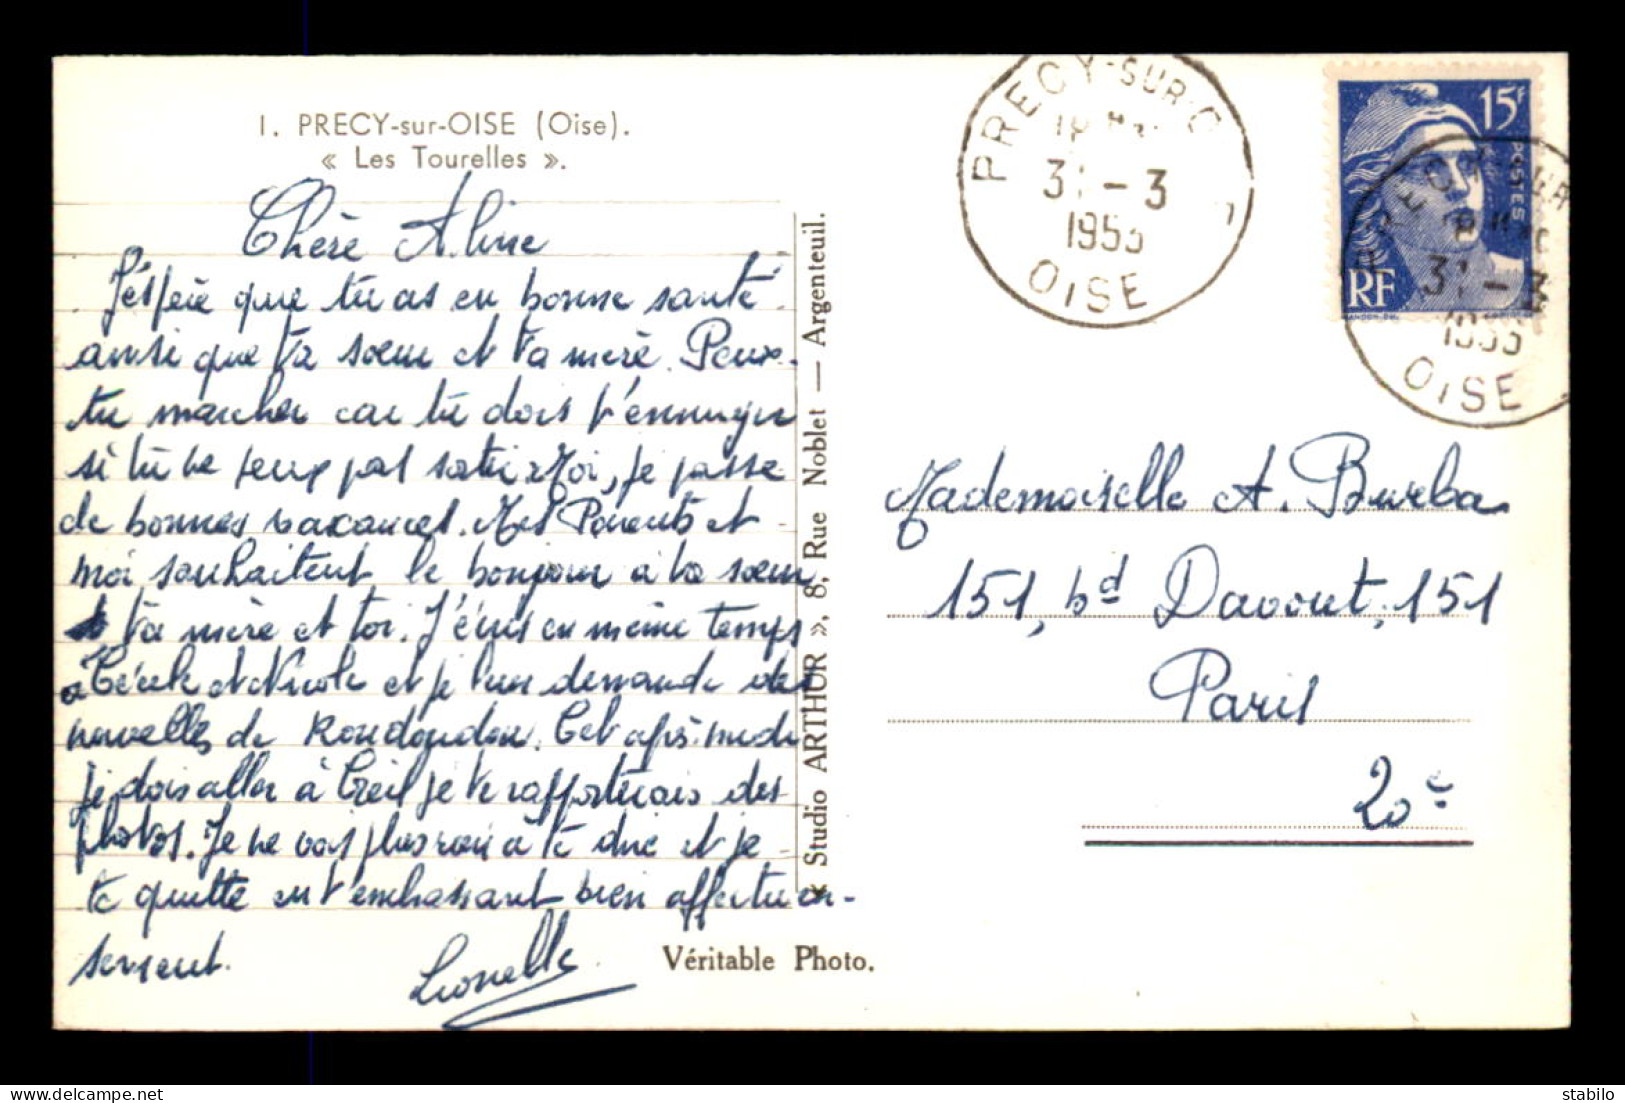 1. PRECY-sur-OISE (Oise).
« Les Tourelles ».
Chère Aline
J'éspère que tu as en bonne santé
ainsi que ta sœur et ta mère. Peux-
tu marcher car tu dois t'ennuyer
si tu ne peux pas sortir. Moi, je passe
de bonnes vacances. Mes Parents et
moi souhaitent le bonjour à ta sœur
ta mère et toi. J'écris en même temps
à Cécile et Nicole et je leur demande des
nouvelles de Roudoudou. Cet après-midi
je dois aller à Creil je te rapporterais des
photos. Je ne vois plus rien à te dire et je
te quitte en t'embrassant bien affectueu-
sement.
Lionelle
« Studio ARTHUR », 8, Rue Noblet — Argenteuil.
Véritable Photo.
PRECY-SUR-O
31 - 3
1953
OISE
15F
POSTES
RF
PRECY-SUR
31 - 3
1953
OISE
Mademoiselle A. Burba
151, bd Davout, 151
Paris
20e
delcampe.net
stabilo